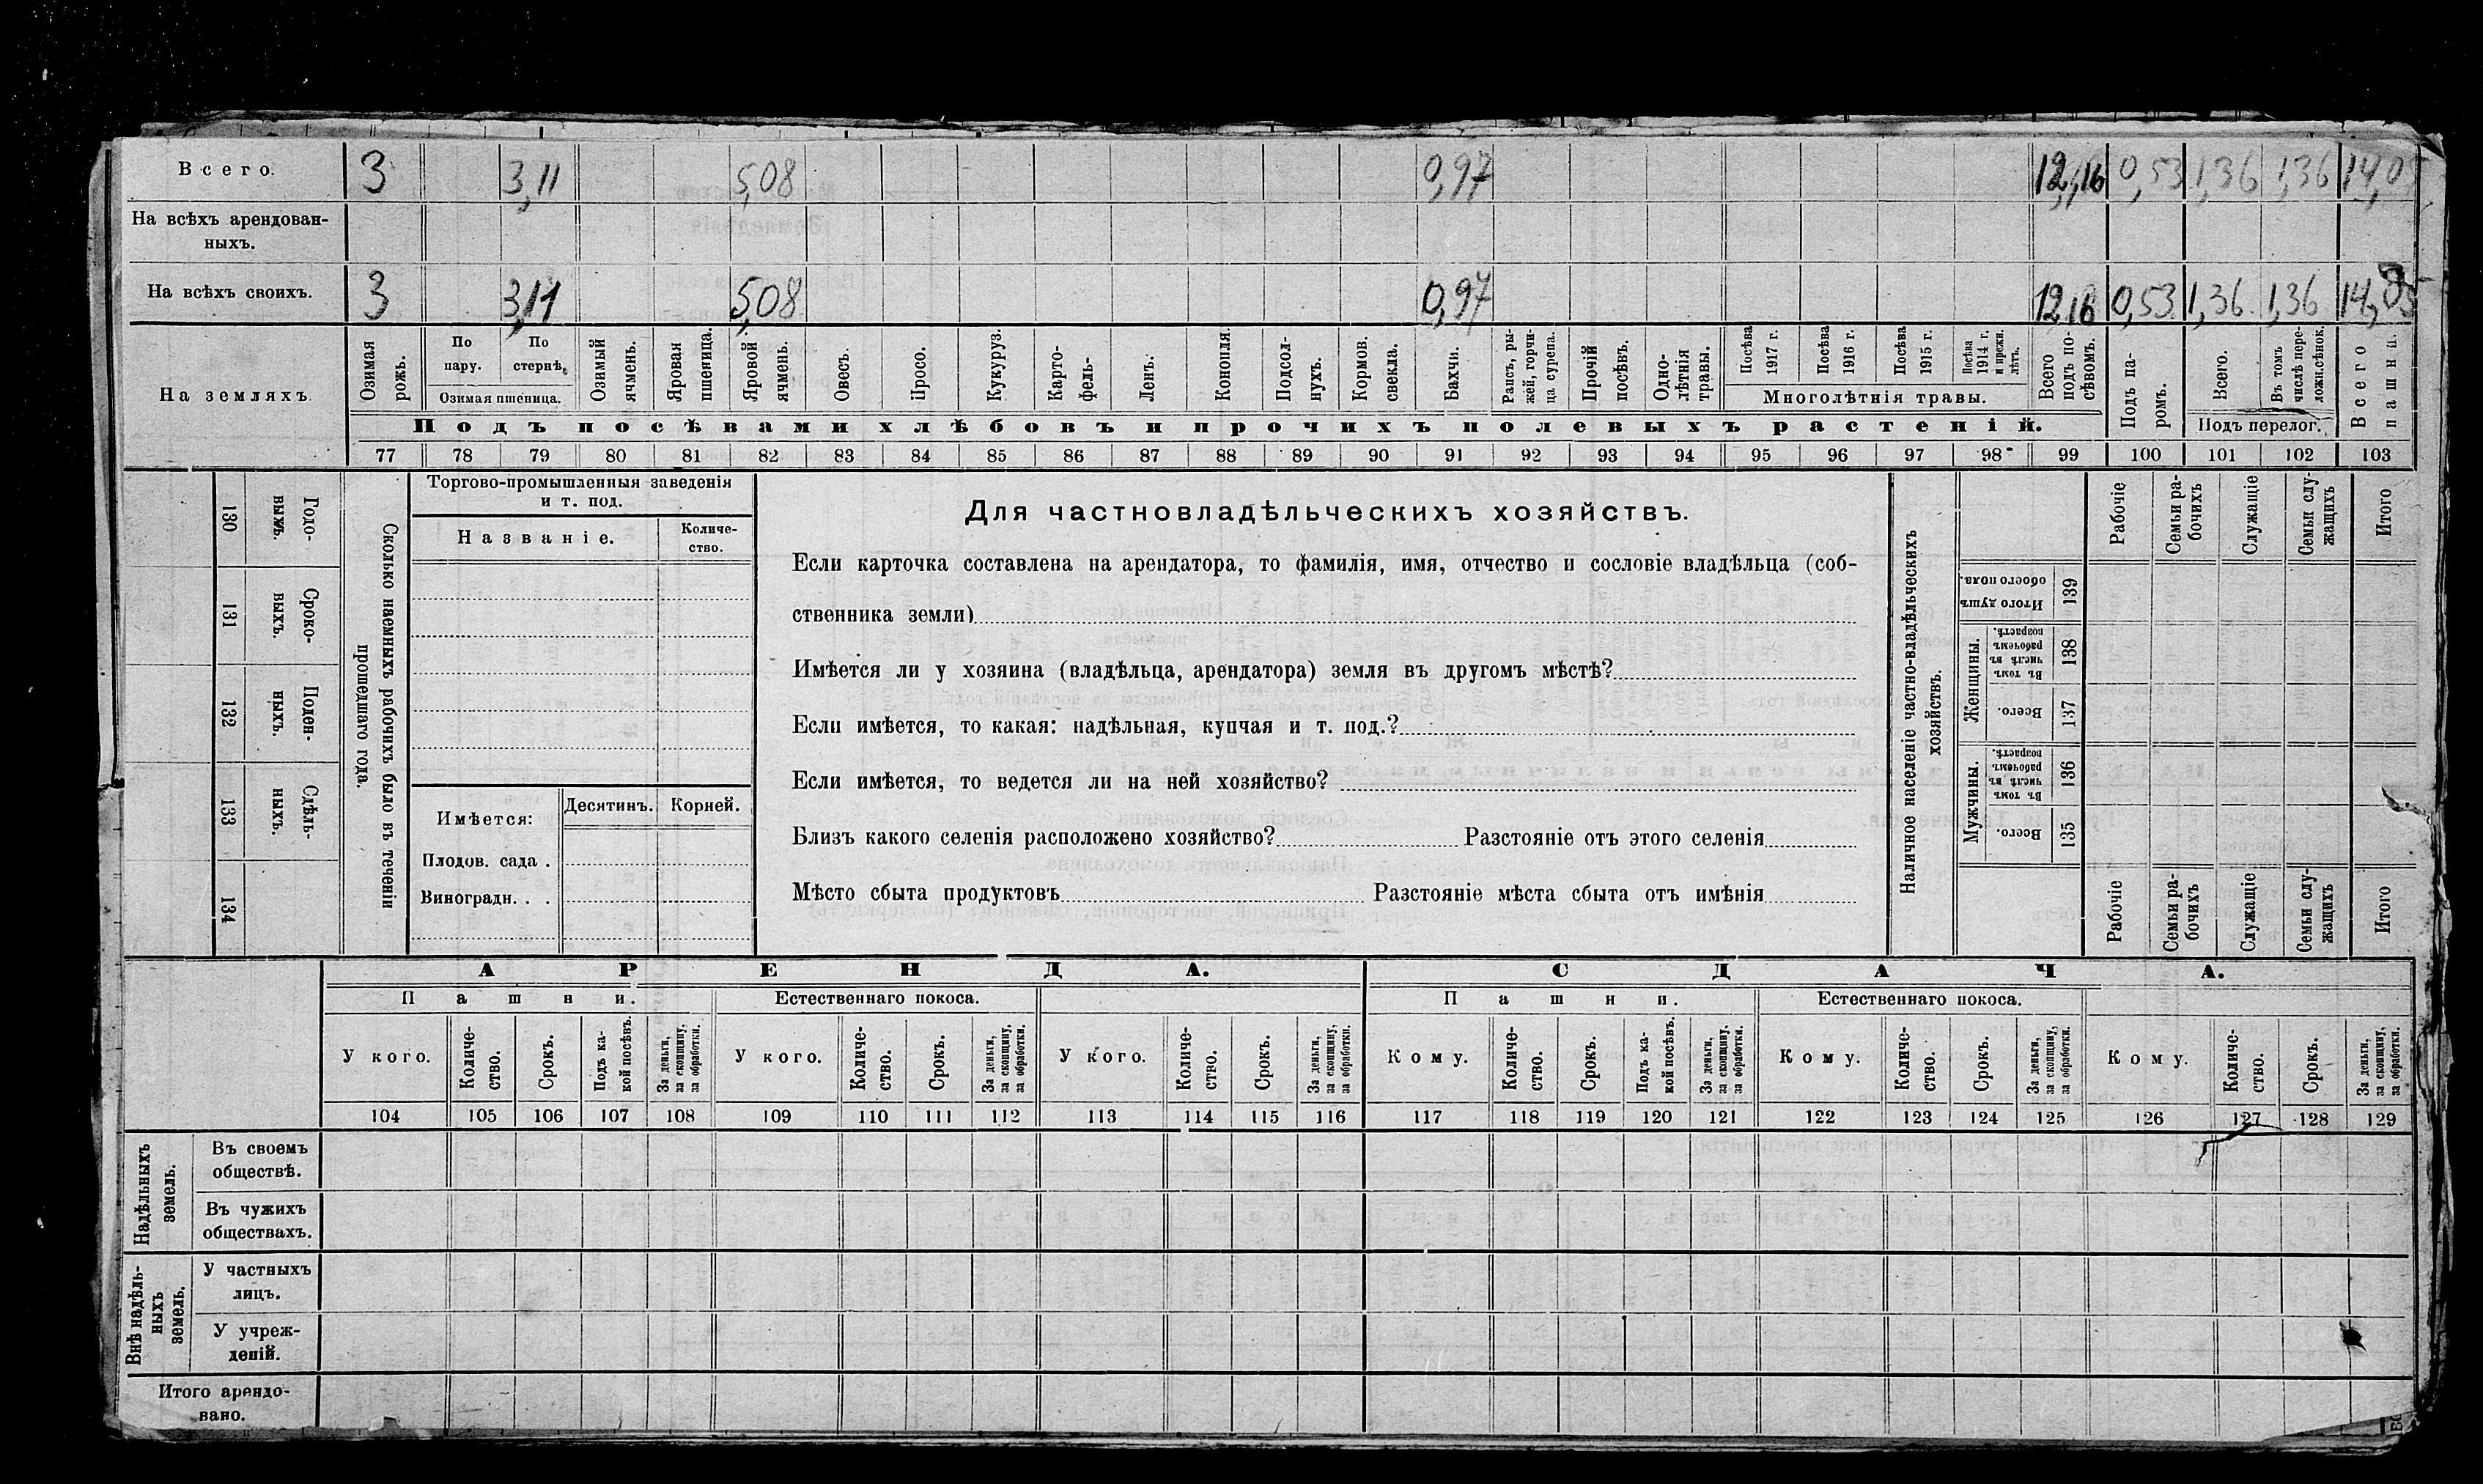 Всего. 3 3,11 5,08 0,97 12,16 0,53 1,36 1,36 14,05
На всѣхъ арендован-
ныхъ.
На всѣхъ своихъ. 3 3,11 5,08 0,97 12,16 0,53 1,36 1,36 14,05
На земляхъ.
Озимая рожь.
По пару.
По стернѣ.
Озимая пшеница.
Озимый ячмень.
Яровая пшеница.
Яровой ячмень.
Овесъ.
Просо.
Кукуруз.
Карто-
фель.
Ленъ.
Конопля.
Подсол-
нухъ.
Кормов.
свекла.
Бахчи.
Рапсъ, ры-
жей, горчи-
ца сурепа.
Прочій
посѣвъ.
Одно-
лѣтнія
травы.
Посѣва
1917 г.
Посѣва
1916 г.
Посѣва
1915 г.
Посѣва
1914 г.
и прежн.
лѣтъ.
Многолѣтнія травы.
Всего
подъ по-
сѣвомъ.
Подъ па-
ромъ.
Всего.
Въ томъ
числѣ пере-
ложн.сѣнок.
Подъ перелог.
Всего
пашни.
Подъ посѣвами хлѣбовъ и прочихъ полевыхъ растеній.
77 78 79 80 81 82 83 84 85 86 87 88 89 90 91 92 93 94 95 96 97 98 99 100 101 102 103
130 Годо-
выхъ.
131 Сроко-
выхъ.
132 Поден-
ныхъ.
133 Сдѣль-
ныхъ.
134
Сколько наемныхъ рабочихъ было въ теченіи
прошедшаго года.
Торгово-промышленныя заведенія
и т. под.
Названіе.
Количе-
ство.
Имѣется:
Десятинъ. Корней.
Плодов. сада .
Виноградн. . .
Для частновладѣльческихъ хозяйствъ.
Если карточка составлена на арендатора, то фамилія, имя, отчество и сословіе владѣльца (соб-
ственника земли)
Имѣется ли у хозяина (владѣльца, арендатора) земля въ другомъ мѣстѣ?
Если имѣется, то какая: надѣльная, купчая и т. под.?
Если имѣется, то ведется ли на ней хозяйство?
Близъ какого селенія расположено хозяйство? Разстояніе отъ этого селенія
Мѣсто сбыта продуктовъ Разстояніе мѣста сбыта отъ имѣнія
Наличное населеніе частно-владѣльческихъ
хозяйствъ.
Рабочіе
Семьи ра-
бочихъ
Служащіе
Семьи слу-
жащихъ
Итого
Итого душъ
обоего пола.
139
Женщины.
Въ томъ
числѣ въ
рабочемъ
возрастѣ.
138
Всего.
137
Мужчины.
Въ томъ
числѣ въ
рабочемъ
возрастѣ.
136
Всего.
135
Рабочіе
Семьи ра-
бочихъ
Служащіе
Семьи слу-
жащихъ
Итого
АРЕНДА. СДАЧА.
Пашни. Естественнаго покоса. Пашни. Естественнаго покоса.
У кого.
Количе-
ство.
Срокъ.
Подъ ка-
кой посѣвъ.
За деньги,
за скопщину,
за обработки.
У кого.
Количе-
ство.
Срокъ.
За деньги,
за скопщину,
за обработки.
У кого.
Количе-
ство.
Срокъ.
За деньги,
за скопщину,
за обработки.
Кому.
Количе-
ство.
Срокъ.
Подъ ка-
кой посѣвъ.
За деньги,
за скопщину,
за обработки.
Кому.
Количе-
ство.
Срокъ.
За деньги,
за скопщину,
за обработки.
Кому.
Количе-
ство.
Срокъ.
За деньги,
за скопщину,
за обработки.
104 105 106 107 108 109 110 111 112 113 114 115 116 117 118 119 120 121 122 123 124 125 126 127 128 129
Надѣльныхъ
земель.
Въ своемъ
обществѣ.
Въ чужихъ
обществахъ.
Внѣ надѣль-
ныхъ
земель.
У частныхъ
лицъ.
У учреж-
деній.
Итого арендо-
вано.